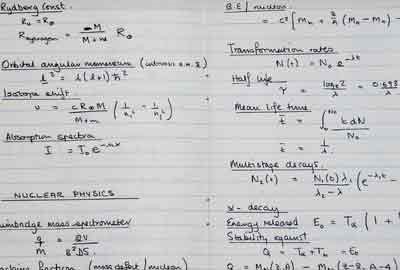 Rydberg Const.
R₀ = R∞
R hydrogen = M / M+m R∞
Orbital angular momentum (
l² = l(l+1)ħ²
Isotope shift.
υ = c R∞ M / M+m (1/n₁² - 1/n₂²)
Absorption spectra
I = I₀ e
NUCLEAR PHYSICS
Bainbridge mass spectrometer
q/M = 2V / B²DS
fraction (mass defect/nucleon)
B.E / nucleon
= c² [Mₙ + Z/A (Mₕ - Mₙ) -
Transformation rates
N(t) = N₀ e^-λt
Half life
τ = logₑ2 / λ = 0.693 / λ
Mean life time
t̄ = ∫₀^N₀ t dN / N₀
t̄ = 1/λ
Multistage decays.
N₂(t) = N₁(0) λ₁ / λ₂ - λ (e^-λ₁t -
α - decay
Energy released E₀ = Tα (1 +
Stability against
Q = Tα + Tₕ = E₀
Q = M (Z,A) - M (Z-2, A-4)